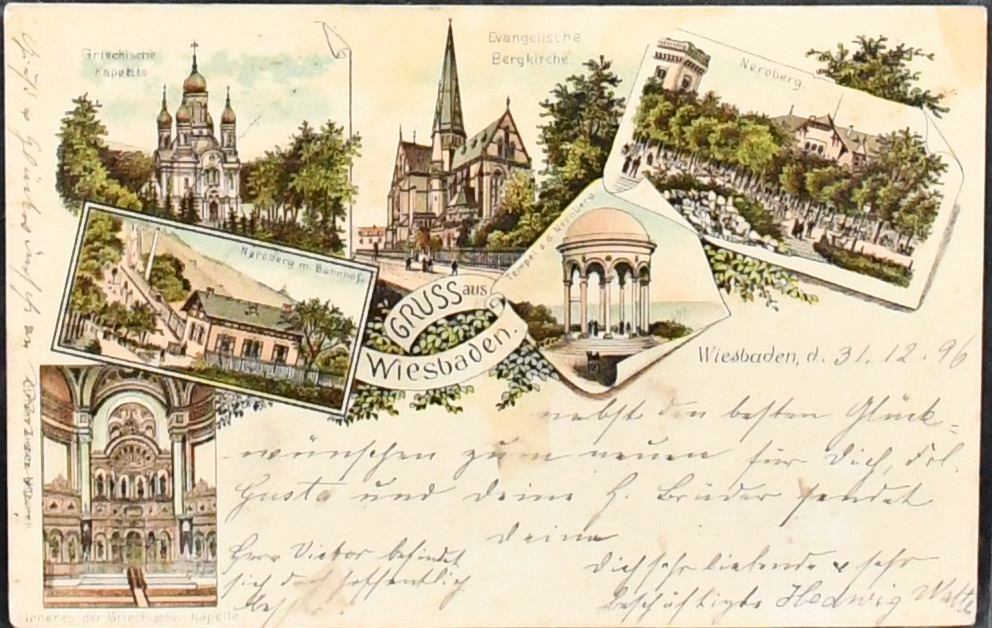 Griechische
Kapelle
Evangelische
Bergkirche.
Neroberg.
Neroberg m. Bahnhof.
Tempel a. d. Neroberg
GRUSS aus
Wiesbaden.
Wiesbaden, d. 31. 12. 96
nebst den besten Glück-
wünschen zum neuen für Dich, Frl.
Gusta und deine H. Brüder sendet
deine
Dich sehr liebende & sehr
beschäftigte Hedwig
Herr Victor befindet
sich doch hoffentlich
besser.
Inneres der Griechischen Kapelle